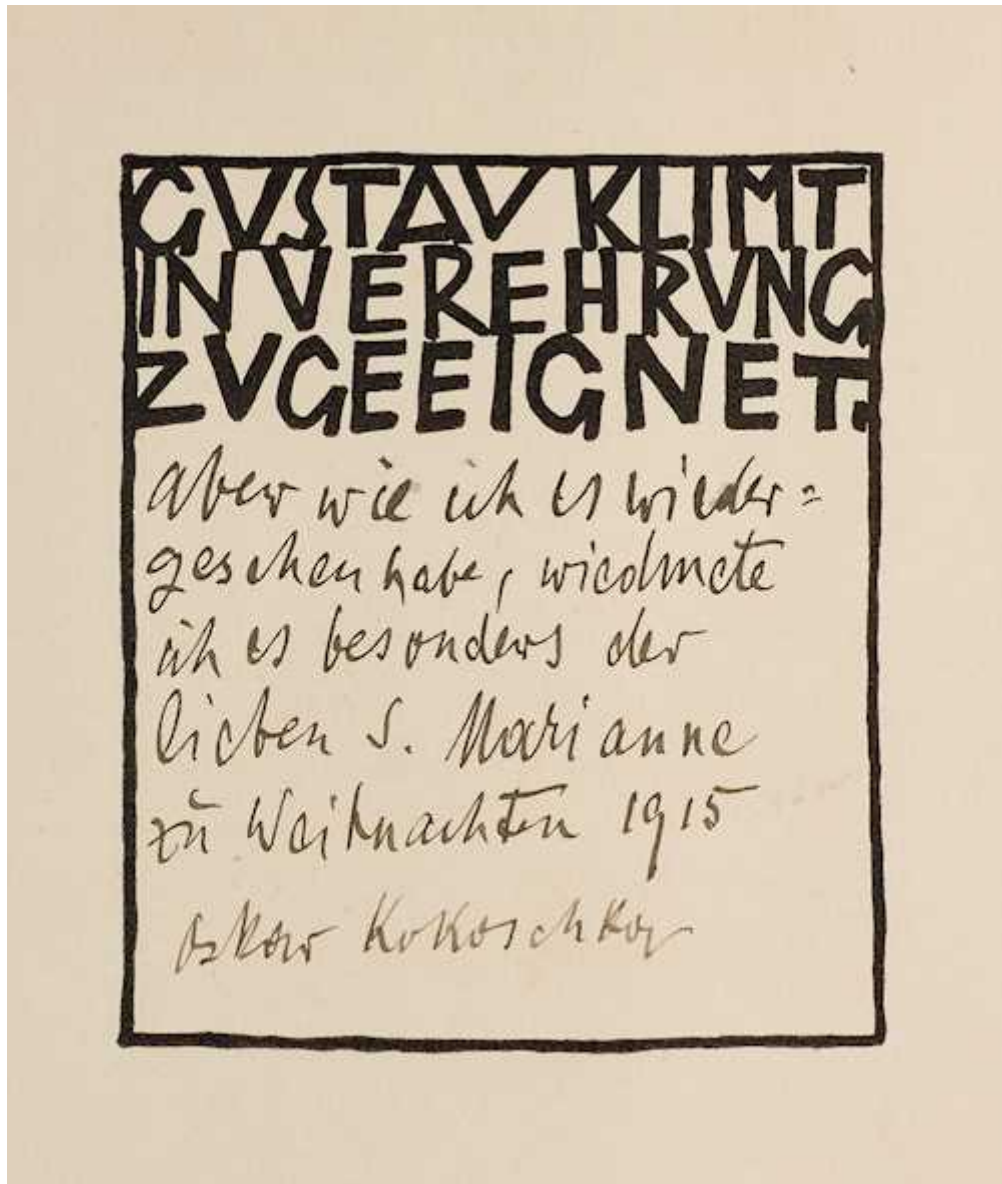 GVSTAV KLIMT
IN VEREHRVNG
ZVGEEIGNET.
Aber wie ich es wieder=
gesehen habe, wiedmete
ich es besonders der
lieben S. Marianne
zu Weihnachten 1915
Oskar Kokoschka